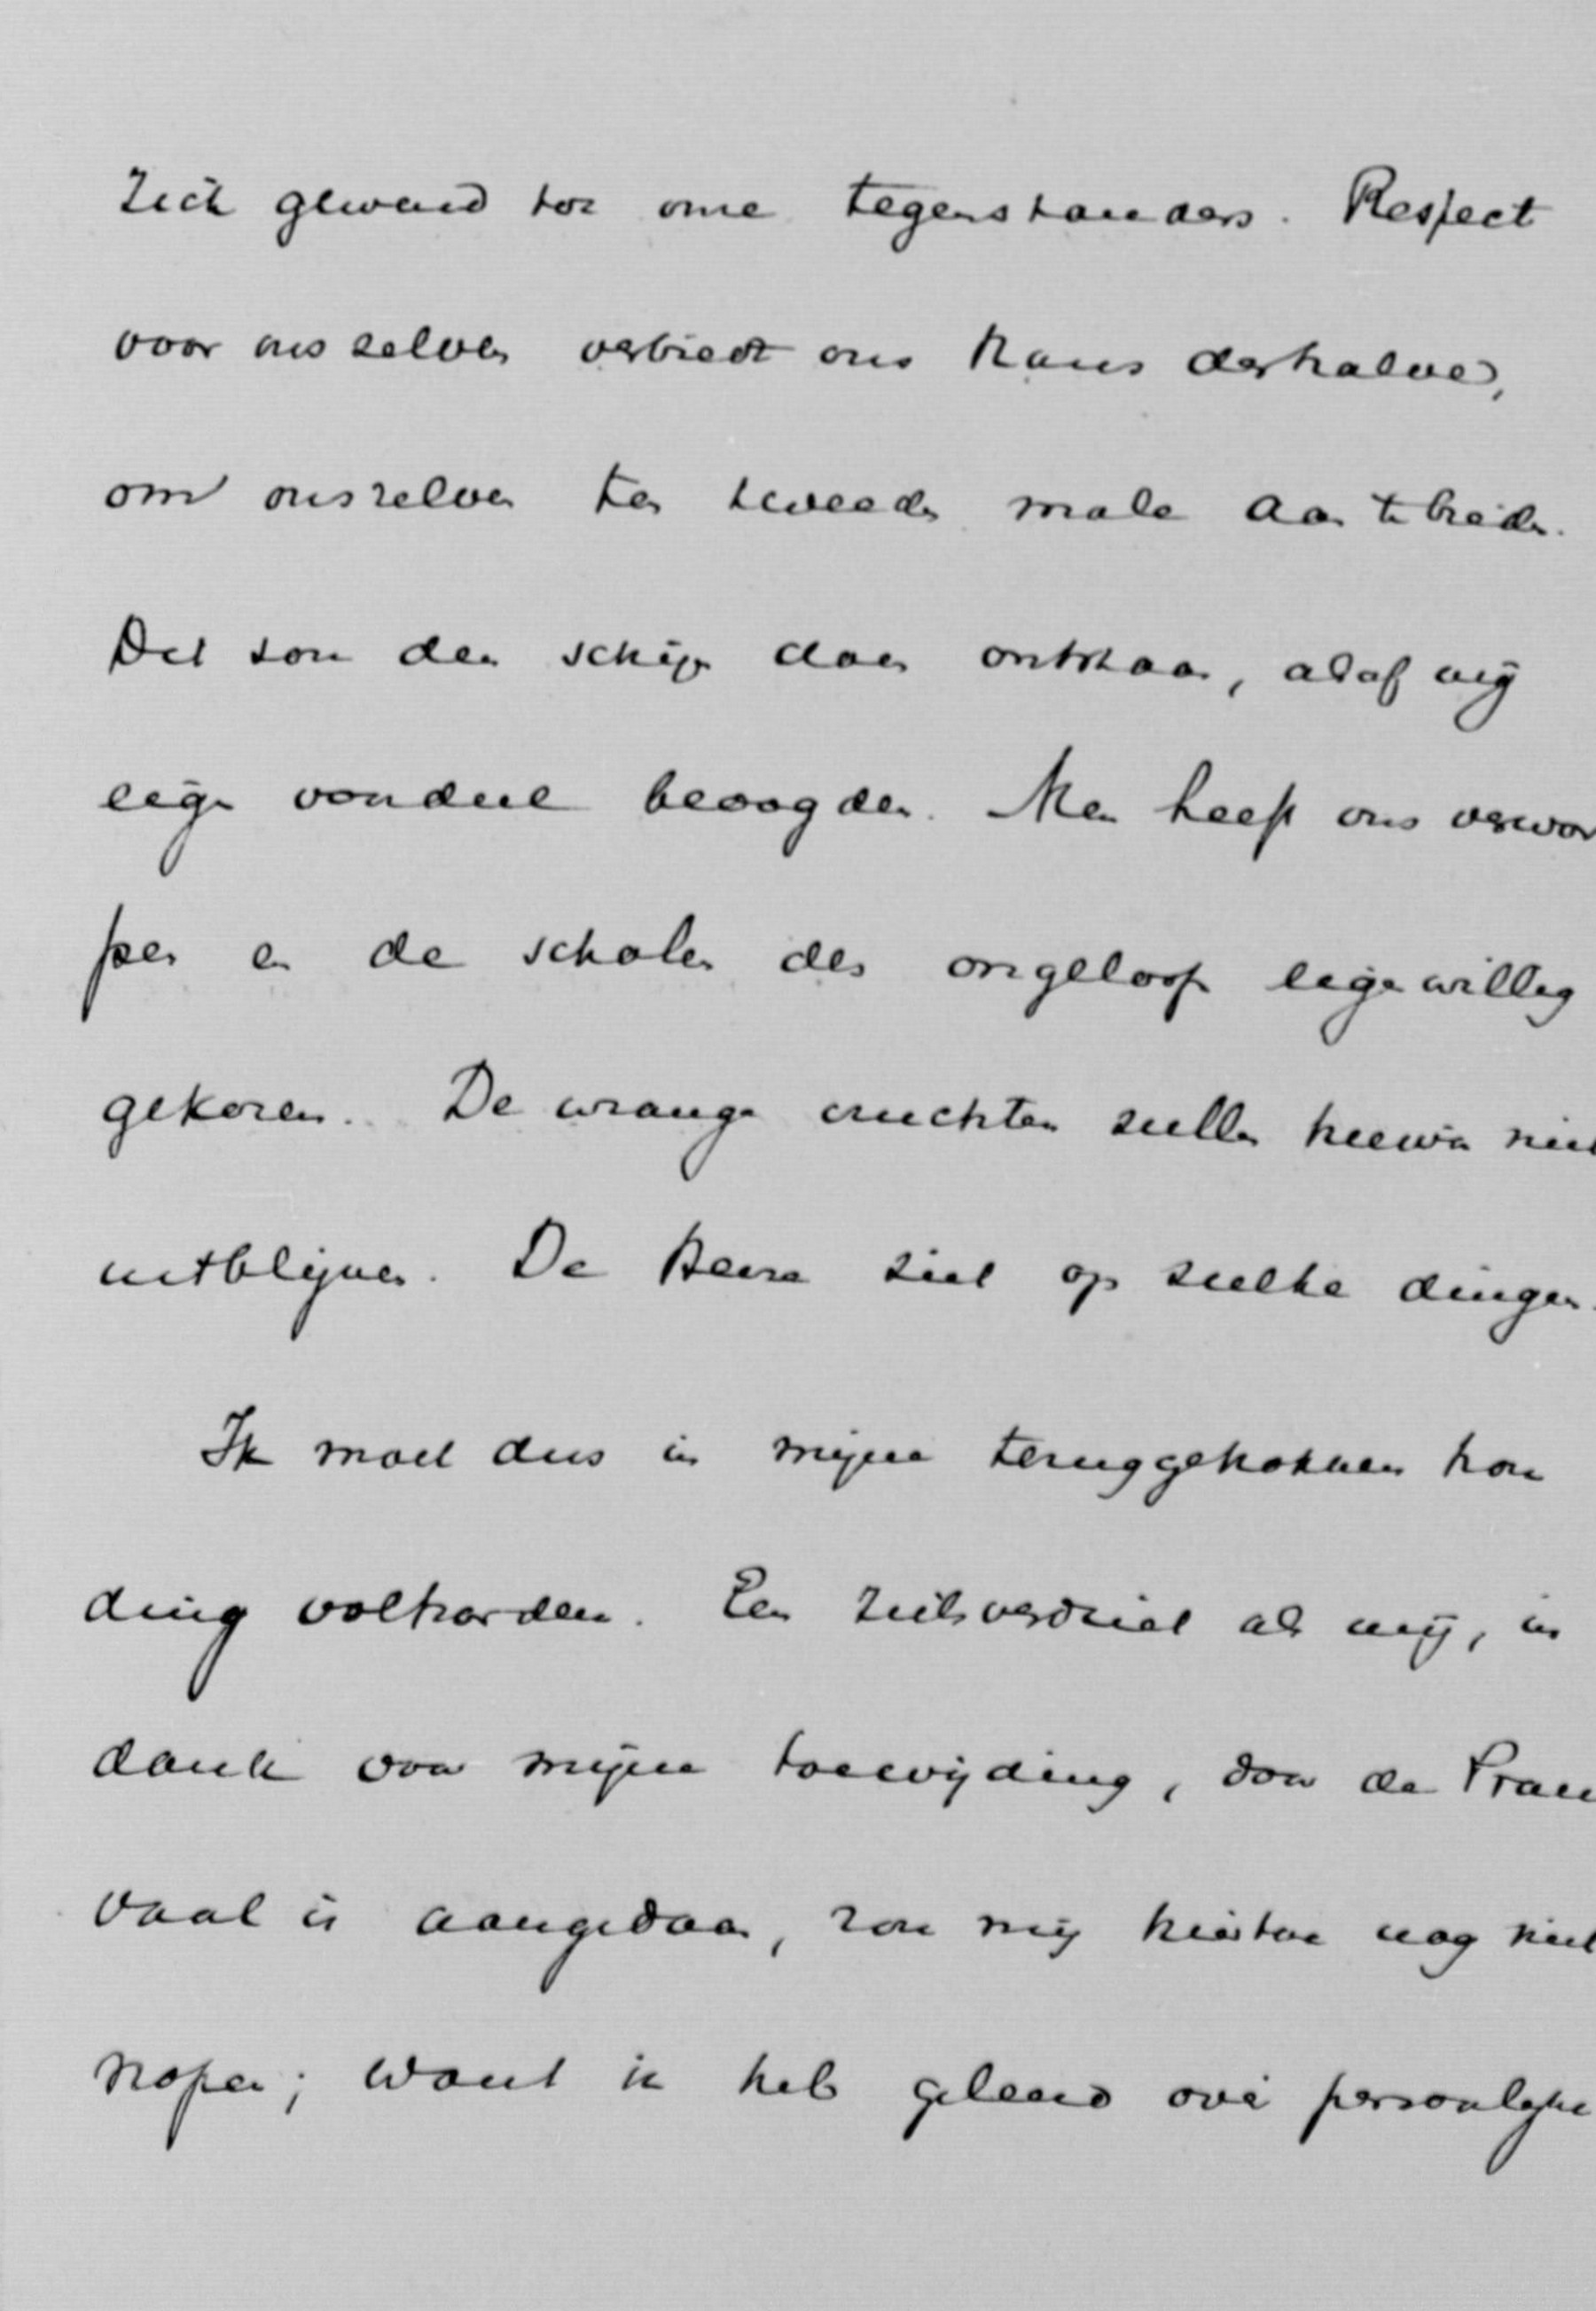 zich gewend tot onze tegenstanders. Respect
voor ons zelven verbiedt ons thans derhalve,
om onszelven ten tweeden male aan te bieden.
Dat zou den schijn doen ontstaan, alsof wij
eigen voordeel beoogden. Men heeft ons verwor
pen en de scholen des ongeloofs eigenwillig
gekozen. De wrange vruchten zullen hiervan niet
uitblijven. De Heere ziet op zulke dingen.
Ik moet dus in mijne teruggetrokken hou
ding volharden. Een zielsverdriet als mij, in
dank voor mijne toewijding, door de Trans
vaal is aangedaan, zou mij hiertoe nog niet
nopen; want ik heb geleerd over persoonlijke